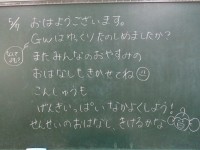 5/7 おはようございます。
GWはゆっくりたのしめましたか?
またみんなのおやすみの
おはなしをきかせてね
こんしゅうも
げんきいっぱいなかよくしよう!
せんせいのおはなし、きけるかな